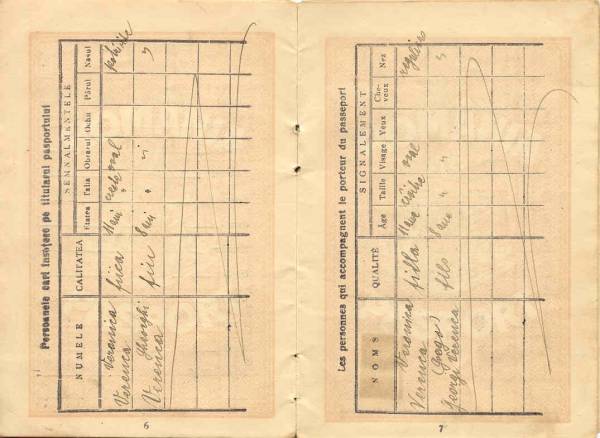 Persoanele cari însoţesc pe titularul paşportului
NUMELE
CALITATEA
SEMNALMENTELE
Etatea
Talia
Obrazul
Ochii
Părul
Nasul
Veronica
Verenca
fiica
oval
Gheorghi
Verenca
fiu
"
"
"
6
Les personnes qui accompagnent le porteur du passeport
NOMS
QUALITÉ
SIGNALEMENT
Âge
Taille
Visage
Yeux
Che-
veux
Nez
Veronica
Verenca
filla
Gogo
Georgi Verenca
fils
"
"
"
7